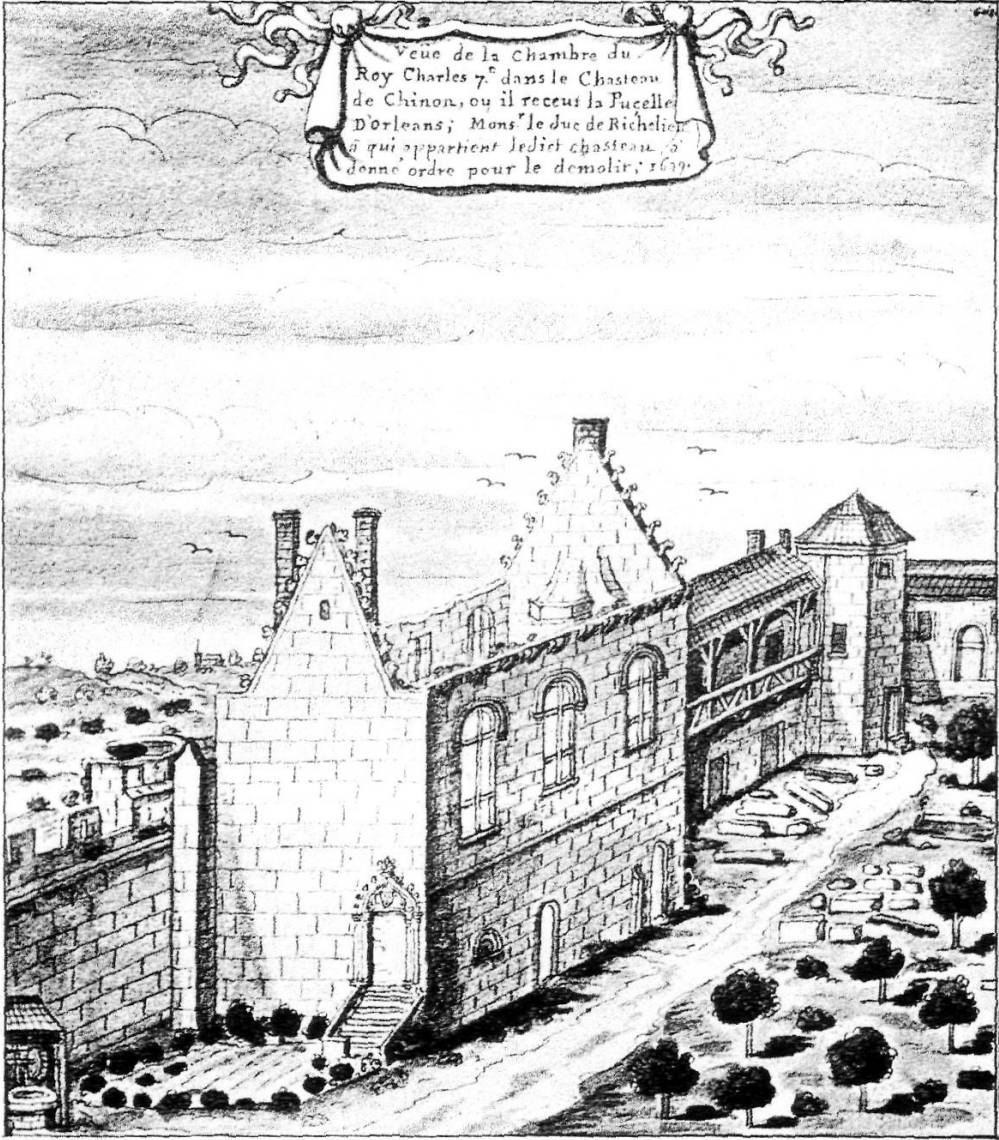 Veüe de la Chambre du
Roy Charles 7.e dans le Chasteau
de Chinon, ou il receut la Pucelle
D'Orleans; Monsr le duc de Richelieu
a qui appartient ledict chasteau, à
donné ordre pour le demolir;